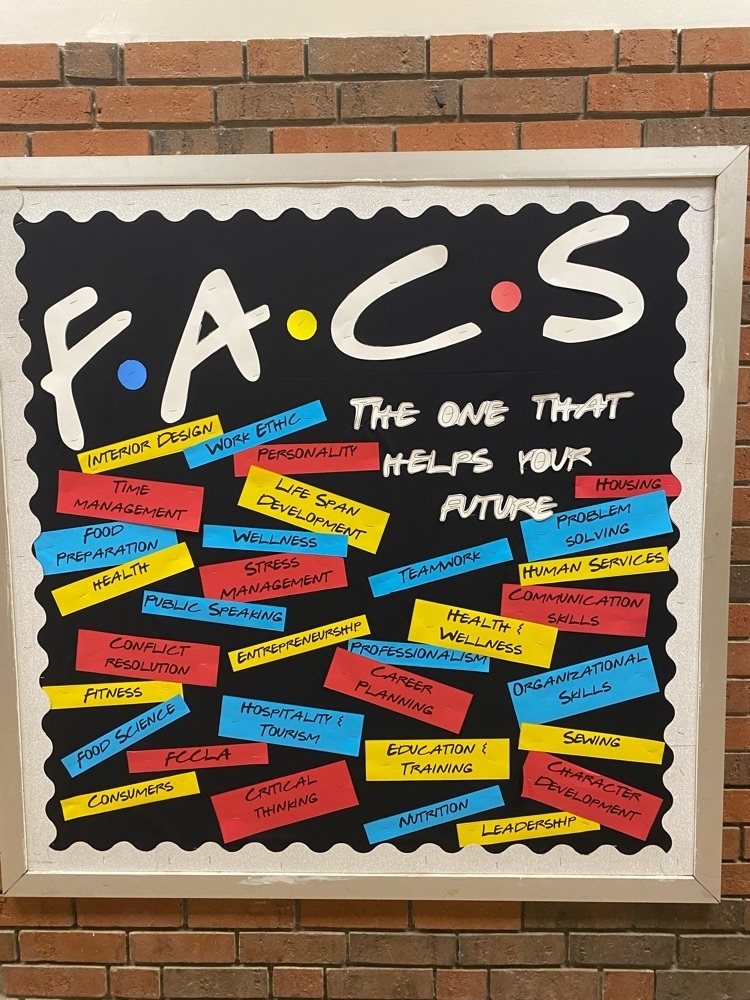 F·A·C·S
THE ONE THAT
HELPS YOUR
FUTURE
INTERIOR DESIGN
WORK ETHIC
PERSONALITY
TIME
MANAGEMENT
LIFE SPAN
DEVELOPMENT
HOUSING
PROBLEM
SOLVING
FOOD
PREPARATION
WELLNESS
HEALTH
STRESS
MANAGEMENT
TEAMWORK
HUMAN SERVICES
PUBLIC SPEAKING
COMMUNICATION
SKILLS
ENTREPRENEURSHIP
HEALTH &
WELLNESS
CONFLICT
RESOLUTION
PROFESSIONALISM
CAREER
PLANNING
ORGANIZATIONAL
SKILLS
FITNESS
FOOD SCIENCE
HOSPITALITY &
TOURISM
SEWING
FCCLA
EDUCATION &
TRAINING
CONSUMERS
CRITICAL
THINKING
CHARACTER
DEVELOPMENT
NUTRITION
LEADERSHIP